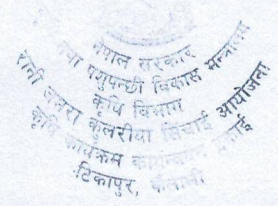 नेपाल सरकार
तथा पशुपन्छी विकास मन्त्रालय
कृषि विभाग
रानी जमरा कुलरीया सिंचाई आयोजना
कृषि कार्यक्रम कार्यान्वयन इकाई
टिकापुर, कैलाली